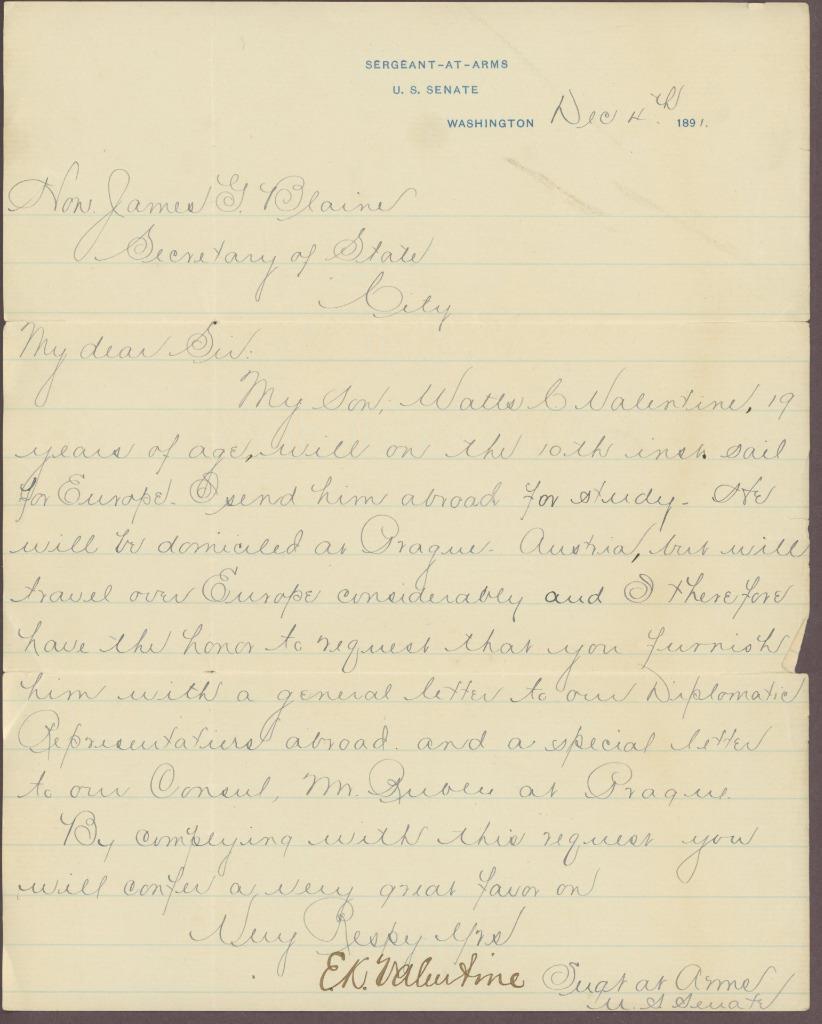 SERGEANT-AT-ARMS
U. S. SENATE
WASHINGTON Dec 4th 1891.
Hon. James G. Blaine
Secretary of State
City
My dear Sir:
My Son, Watts C Valentine, 19
years of age, will on the 10th inst. sail
for Europe. I send him abroad for study. He
will be domiciled at Prague. Austria, but will
travel over Europe considerably and I therefore
have the honor to request that you furnish
him with a general letter to our Diplomatic
Representatives abroad. and a special letter
to our Consul, Mr. at Prague.
By complying with this request you
will confer a very great favor on
Very Respy Yrs
E.K. Valentine Sergt at Arms
U. S Senate